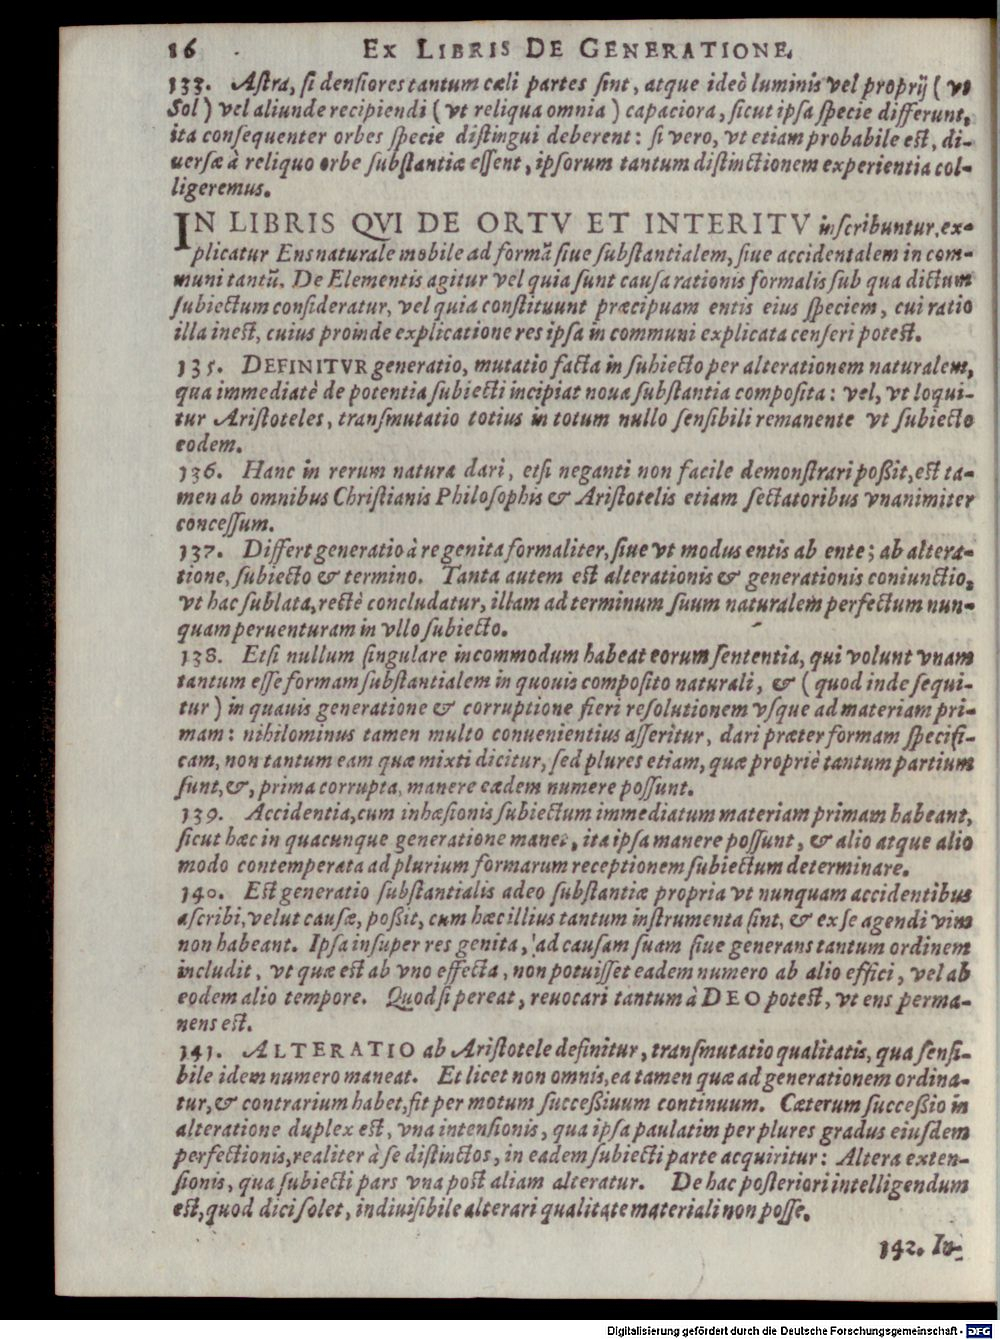 16 EX LIBRIS DE GENERATIONE.
133. Astra, si densiores tantum cæli partes sint, atque ideò luminis vel proprij ( vt
Sol ) vel aliunde recipiendi ( vt reliqua omnia ) capaciora, sicut ipsa specie differunt,
ita consequenter orbes specie distingui deberent: si vero, vt etiam probabile est, di-
uersæ à reliquo orbe substantiæ essent, ipsorum tantum distinctionem experientia col-
ligeremus.
IN LIBRIS QVI DE ORTV ET INTERITV inscribuntur, ex-
plicatur Ens naturale mobile ad formā siue substantialem, siue accidentalem in com-
muni tantū. De Elementis agitur vel quia sunt causa rationis formalis sub qua dictum
subiectum consideratur, vel quia constituunt præcipuam entis eius speciem, cui ratio
illa inest, cuius proinde explicatione res ipsa in communi explicata censeri potest.
135. DEFINITVR generatio, mutatio facta in subiecto per alterationem naturalem,
qua immediatè de potentia subiecti incipiat noua substantia composita: vel, vt loqui-
tur Aristoteles, transmutatio totius in totum nullo sensibili remanente vt subiecto
eodem.
136. Hanc in rerum natura dari, etsi neganti non facile demonstrari poßit, est ta-
men ab omnibus Christianis Philosophis & Aristotelis etiam sectatoribus vnanimiter
concessum.
137. Differt generatio à re genita formaliter, siue vt modus entis ab ente; ab altera-
tione, subiecto & termino. Tanta autem est alterationis & generationis coniunctio,
vt hac sublata, rectè concludatur, illam ad terminum suum naturalem perfectum nun-
quam peruenturam in vllo subiecto.
138. Etsi nullum singulare incommodum habeat eorum sententia, qui volunt vnam
tantum esse formam substantialem in quouis composito naturali, & ( quod inde sequi-
tur ) in quauis generatione & corruptione fieri resolutionem vsque ad materiam pri-
mam: nihilominus tamen multo conuenientius asseritur, dari præter formam specifi-
cam, non tantum eam quæ mixti dicitur, sed plures etiam, quæ propriè tantum partium
sunt, &, prima corrupta, manere eædem numere possunt.
139. Accidentia, cum inhæsionis subiectum immediatum materiam primam habeant,
sicut hæc in quacunque generatione manet, ita ipsa manere possunt, & alio atque alio
modo contemperata ad plurium formarum receptionem subiectum determinare.
140. Est generatio substantialis adeo substantiæ propria vt nunquam accidentibus
ascribi, velut causæ, poßit, cum hæc illius tantum instrumenta sint, & ex se agendi vim
non habeant. Ipsa insuper res genita, ad causam suam siue generans tantum ordinem
includit, vt quæ est ab vno effecta, non potuisset eadem numero ab alio effici, vel ab
eodem alio tempore. Quod si pereat, reuocari tantum à DEO potest, vt ens perma-
nens est.
141. ALTERATIO ab Aristotele definitur, transmutatio qualitatis, qua sensi-
bile idem numero maneat. Et licet non omnis, ea tamen quæ ad generationem ordina-
tur, & contrarium habet, fit per motum succeßiuum continuum. Cæterum succeßio in
alteratione duplex est, vna intensionis, qua ipsa paulatim per plures gradus eiusdem
perfectionis, realiter à se distinctos, in eadem subiecti parte acquiritur: Altera exten-
sionis, qua subiecti pars vna post aliam alteratur. De hac posteriori intelligendum
est, quod dici solet, indiuisibile alterari qualitate materiali non posse.
142. In-
Digitalisierung gefördert durch die Deutsche Forschungsgemeinschaft - DFG